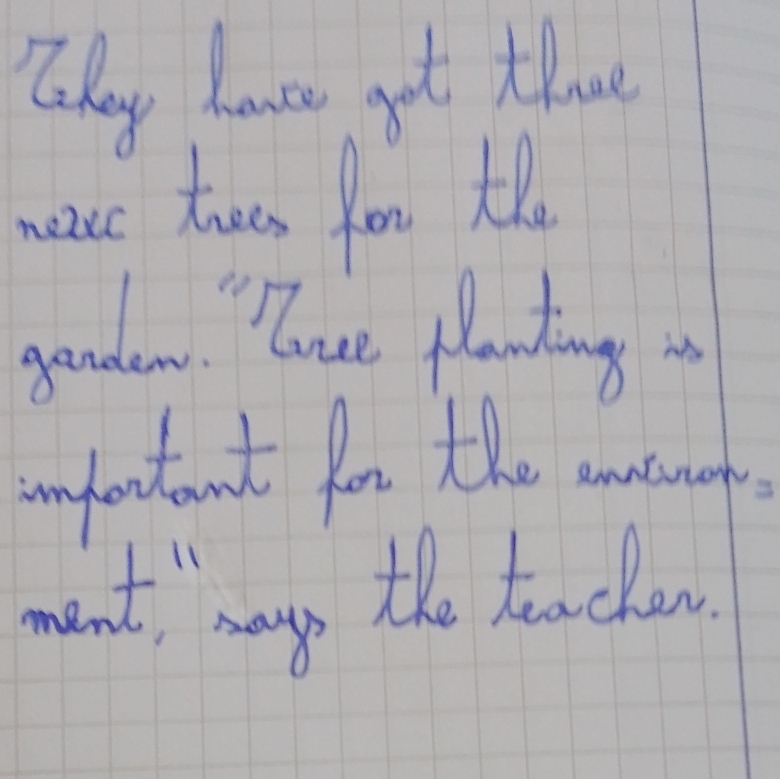 They have got three
new trees for the
garden. "Tree planting is
important for the environ=
ment," says the teacher.